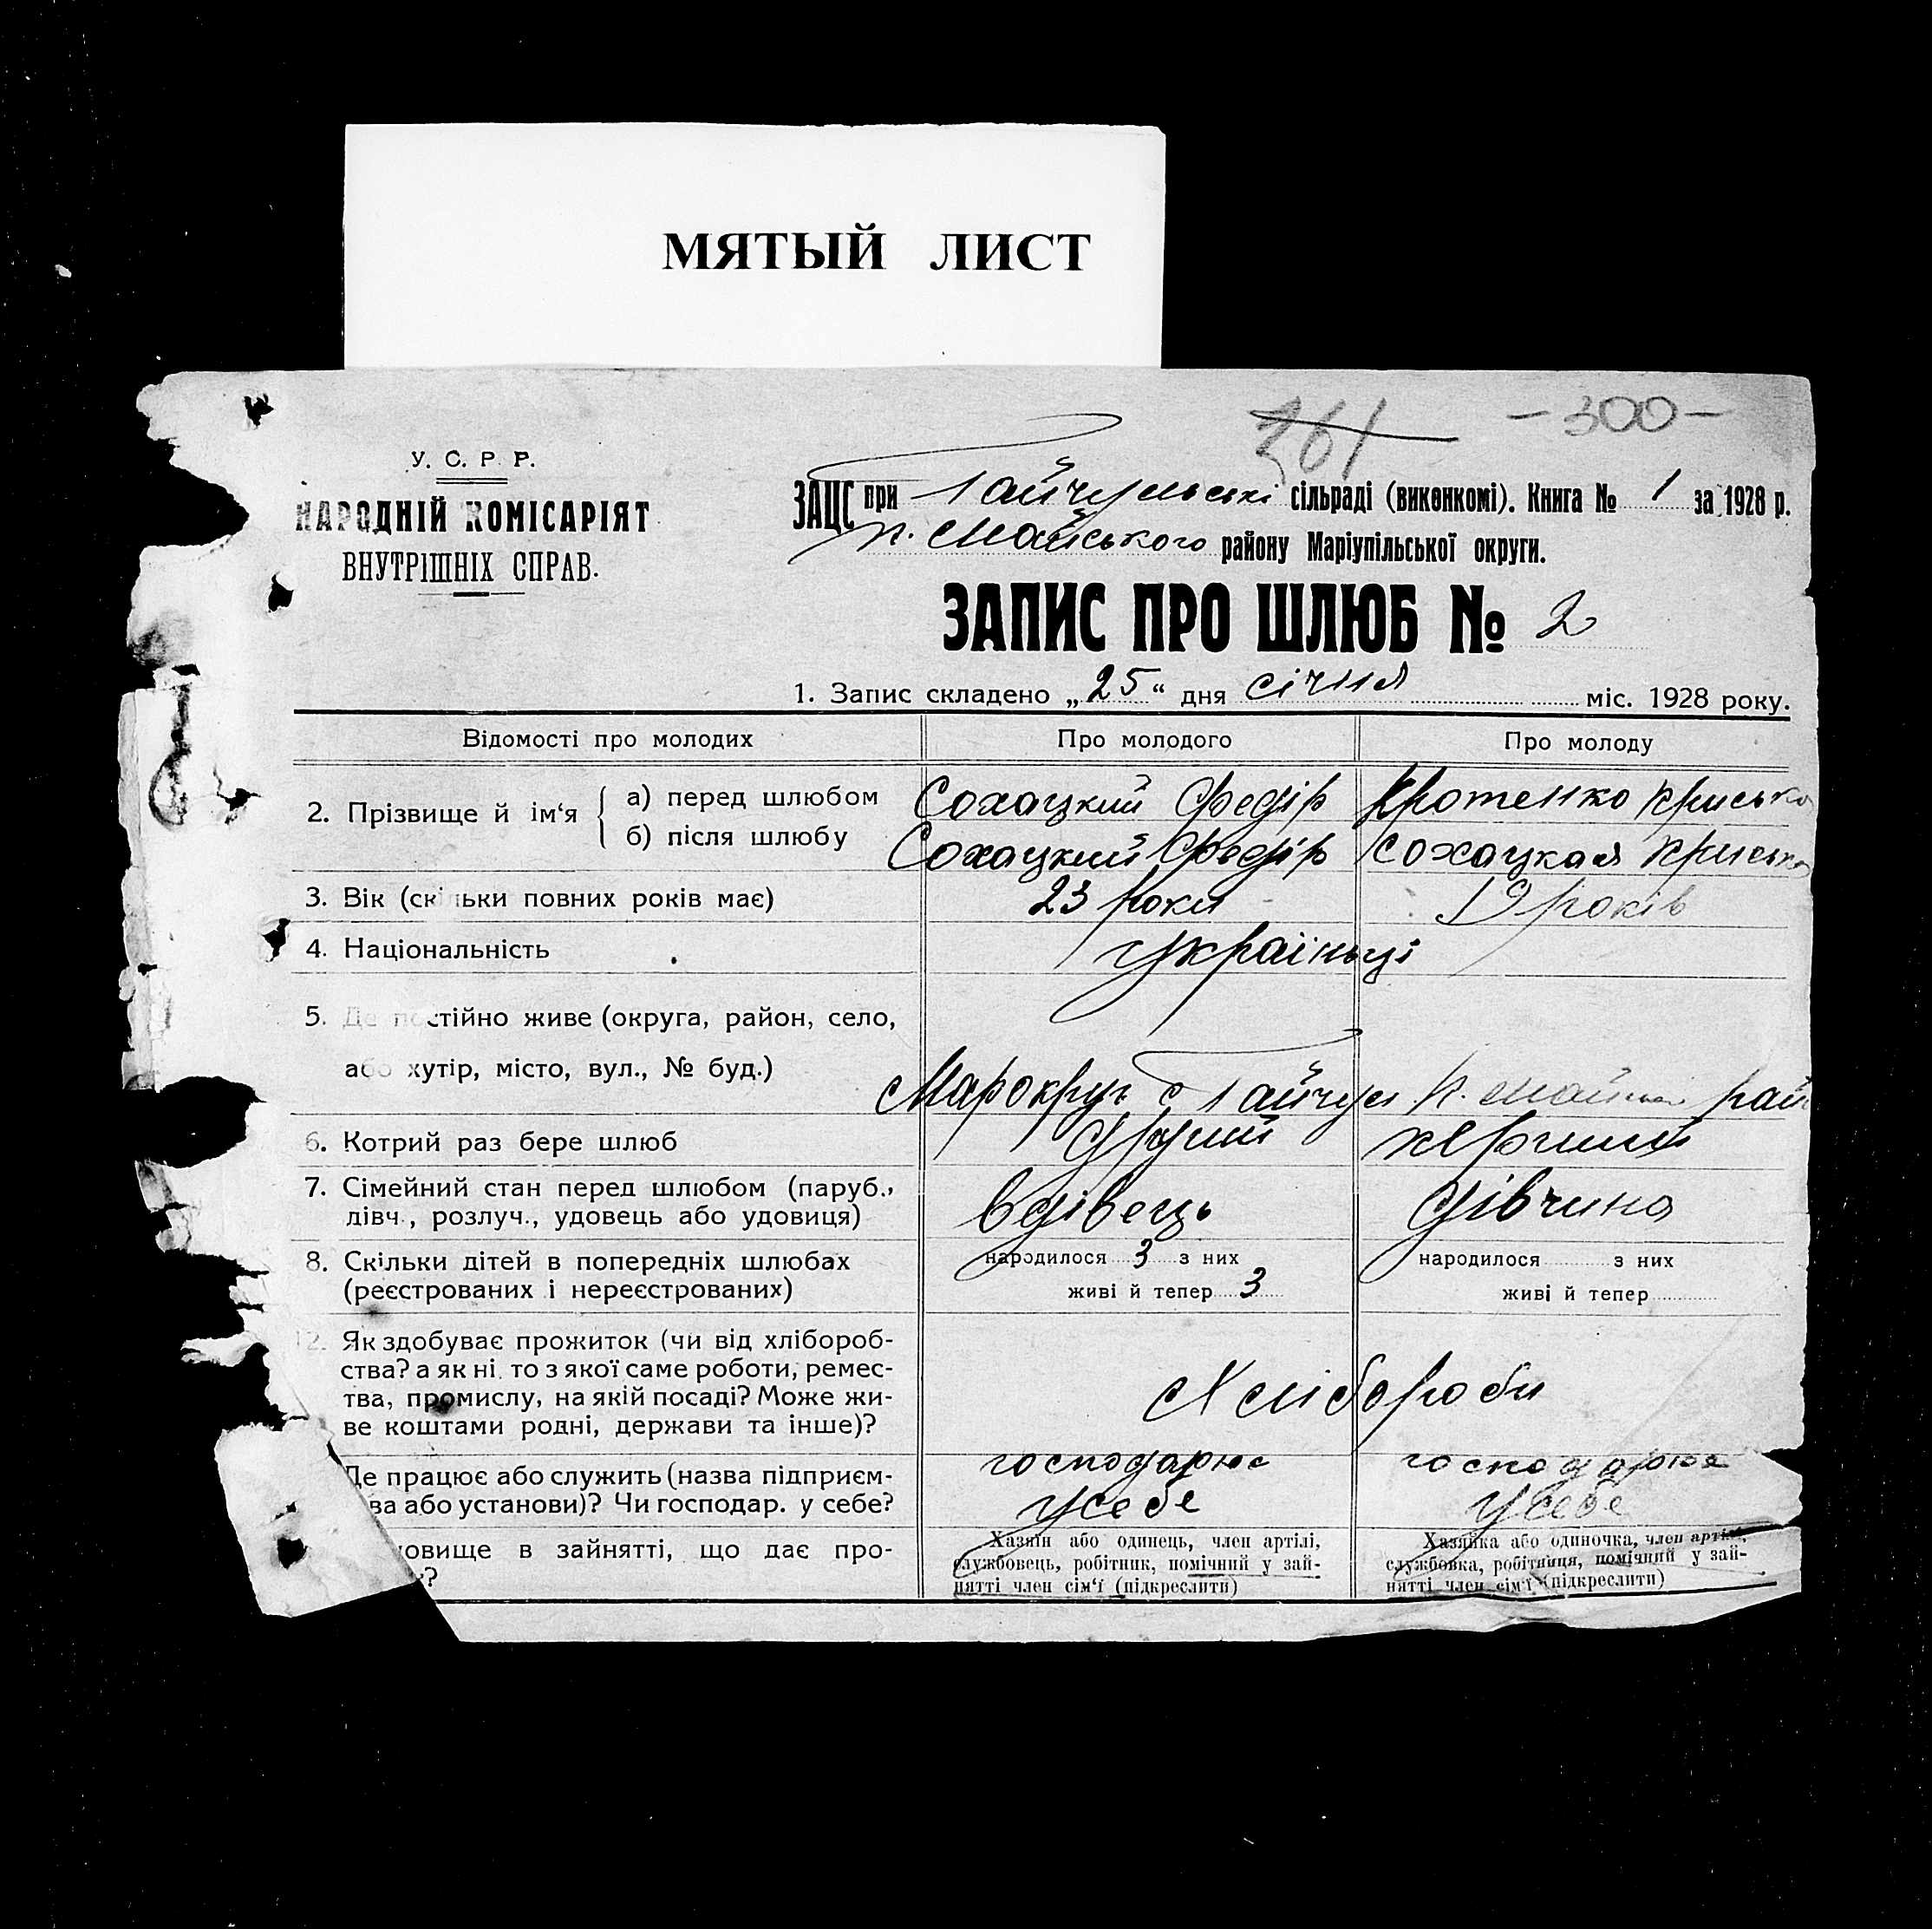 МЯТЫЙ ЛИСТ
361
- 300 -
У. С. Р. Р.
НАРОДНІЙ КОМІСАРІЯТ
ВНУТРІШНІХ СПРАВ.
ЗАЦС при Гайчульські сільраді (виконкомі). Книга № 1 за 1928 р.
п. Майського району Маріупільської округи.
ЗАПИС ПРО ШЛЮБ № 2
1. Запис складено „25“ дня січня міс. 1928 року.
Відомості про молодих Про молодого Про молоду
2. Прізвище й ім‘я
а) перед шлюбом Сохацкий Федір Кротенко Криська
б) після шлюбу Сохацкий Федір Сохацкая Криська
3. Вік (скільки повних років має) 23 роки 19 років
4. Національність українці
5. Де постійно живе (округа, район, село,
або хутір, місто, вул., № буд.) Марокруг с Гайчул рай
6. Котрий раз бере шлюб другий перший
7. Сімейний стан перед шлюбом (паруб.,
дівч., розлуч., удовець або удовиця) вдівець дівчина
8. Скільки дітей в попередніх шлюбах народилося 3 з них народилося з них
(реєстрованих і нереєстрованих) живі й тепер 3 живі й тепер
12. Як здобуває прожиток (чи від хлібороб-
ства? а як ні, то з якої саме роботи, ремес-
тва, промислу, на якій посаді? Може жи-
ве коштами родні, держави та інше)? Хлібороби
Де працює або служить (назва підприєм- господарює господарює
ва або установи)? Чи господар. у себе? у себе у себе
овище в зайнятті, що дає про-
?
Хазяїн або одинець, член артілі,
службовець, робітник, помічний у зай-
нятті член сім‘ї (підкреслити)
Хазяйка або одиночка, член артілі,
службовка, робітниця, помічний у зай-
нятті член сім‘ї (підкреслити)